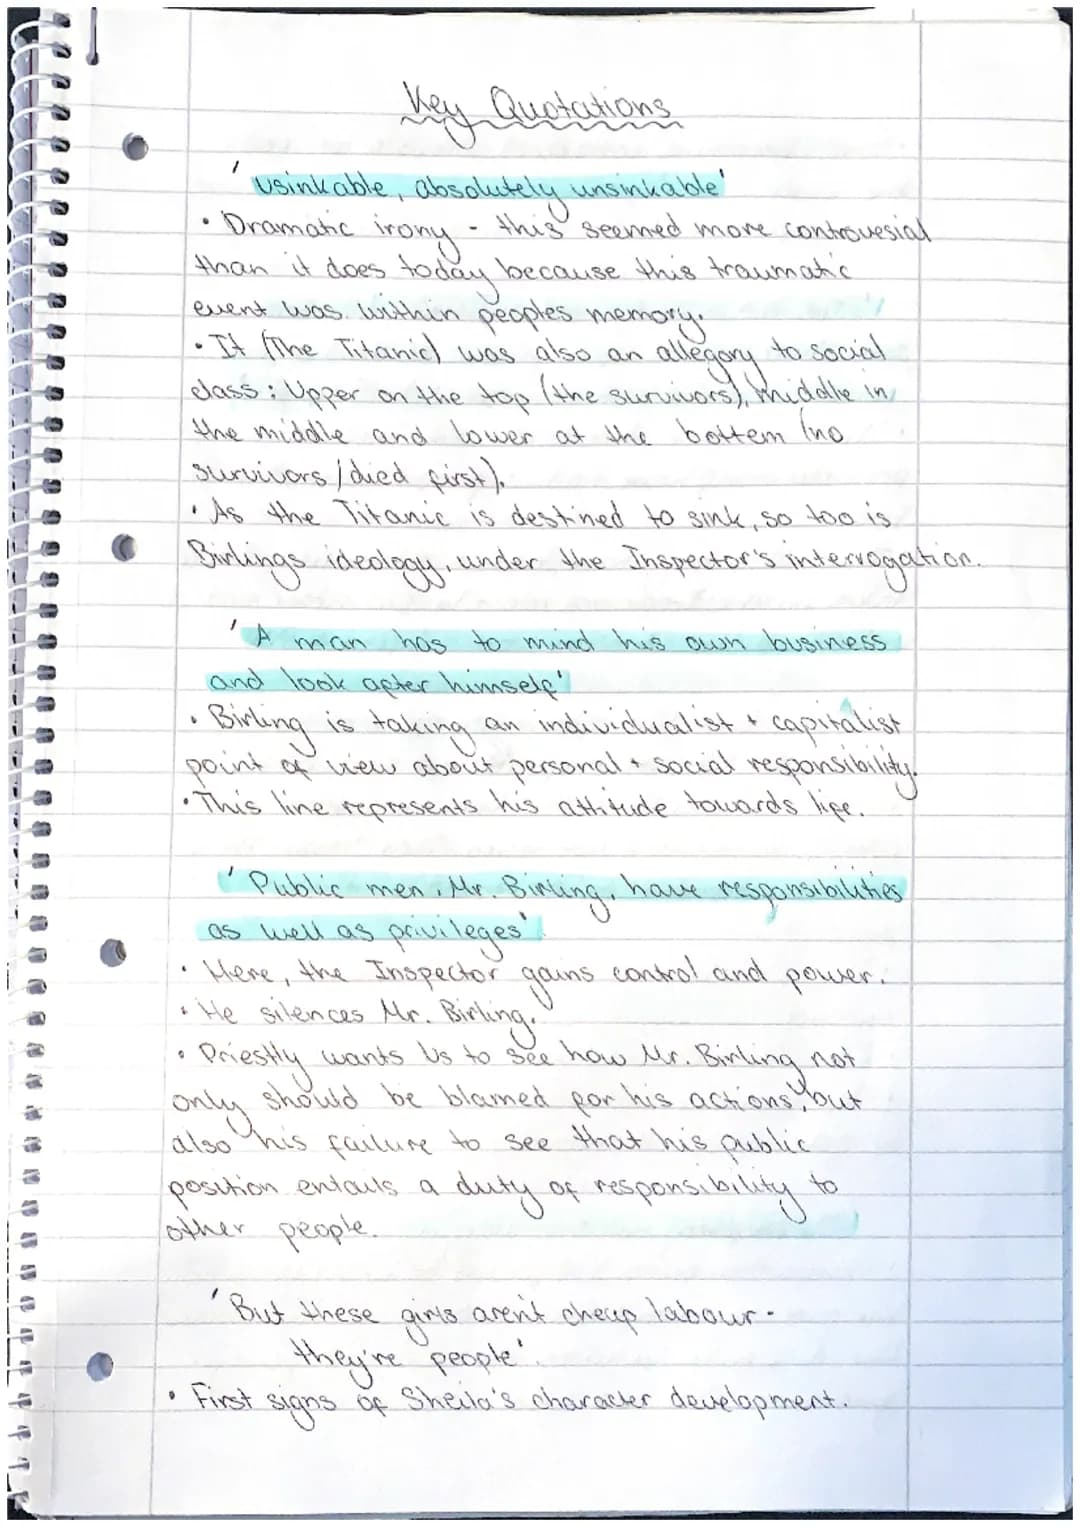 Key Quotations
'usinkable, absolutely unsinkable'
• Dramatic irony - this seemed more controvesial
than it does today because this traumatic
event was within peoples memory.
• It (The Titanic) was also an allegory to social
class: Upper on the top (the survivors), middle in
the middle and lower at the bottem (no
survivors/died first).
• As the Titanic is destined to sink, so too is
Birlings ideology, under the Inspector's interrogation.
'A man has to mind his own business
and look after himself'
• Birling is taking an individualist + capitalist
point of view about personal + social responsibility.
• This line represents his attitude towards life.
'Public men, Mr. Birling, have responsibilities
as well as privileges'.
• Here, the Inspector gains control and power.
• He silences Mr. Birling.
• Priestly wants Us to see how Mr. Birling not
only should be blamed for his actions, but
also his failure to see that his public
position entails a duty of responsibility to
other people.
'But these girls aren't cheap labour -
they're people'.
• First signs of Sheila's character development.